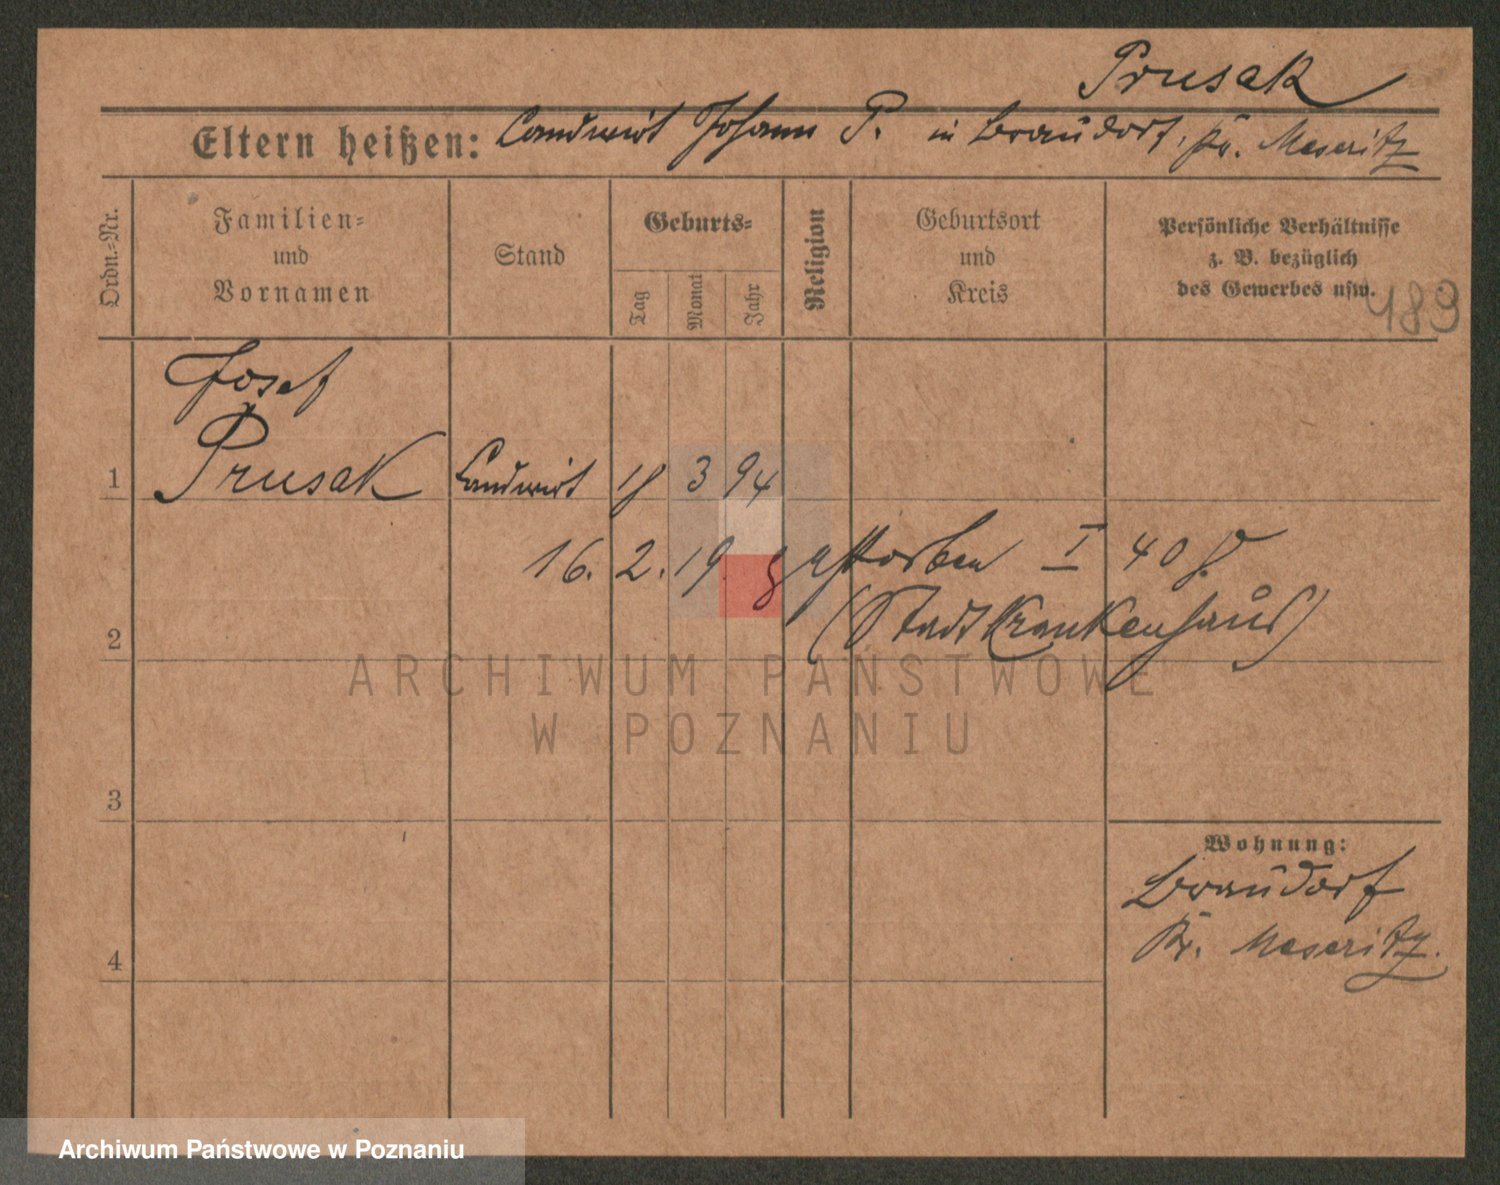 Prusak
Eltern heißen: Landwirt Johann P. in Braudorf, Kr. Meseritz
Ordn.-Nr.
Familien-
und
Vornamen
Stand
Geburts-
Tag
Monat
Jahr
Religion
Geburtsort
und
Kreis
Persönliche Verhältnisse
z. B. bezüglich
des Gewerbes usw.
189
Josef
1 Prusak Landwirt 18 3 94
16. 2. 19 gestorben I 40
2 (Stadtkrankenhaus)
ARCHIWUM PAŃSTWOWE
W POZNANIU
3
Wohnung:
Braudorf
Kr. Meseritz.
4
Archiwum Państwowe w Poznaniu